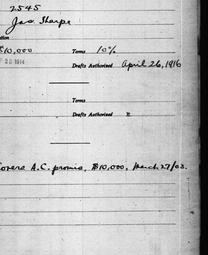 2545
Jas Sharpe
tion
$10,000 Terms 10%
28 1914 Drafts Authorized April 26, 1916
Terms
Drafts Authorized
overs A.C. promis, $10,000, March 27/03.